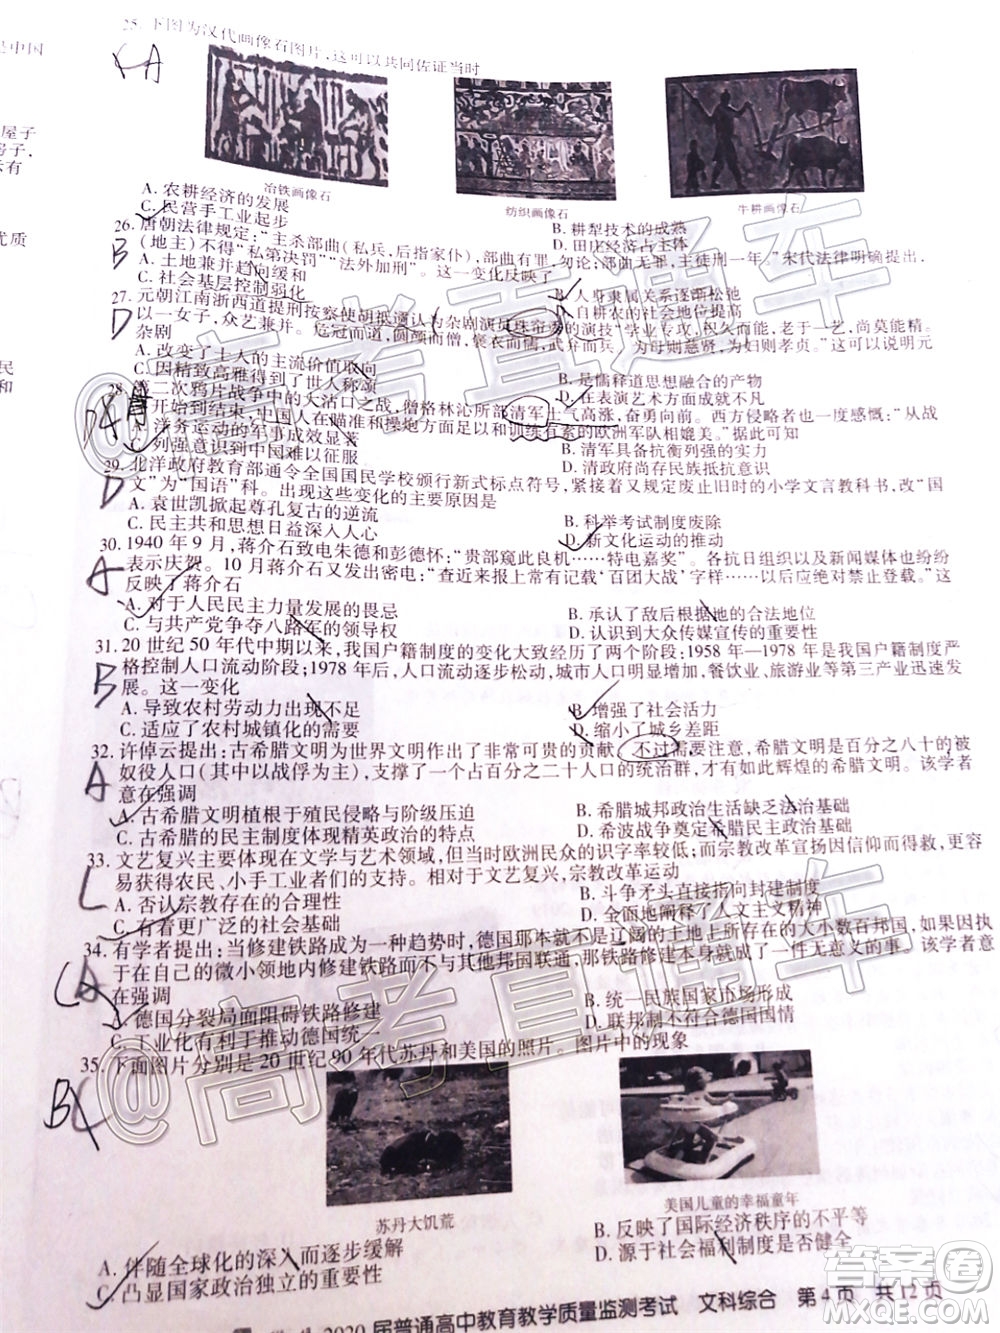 是中国
屋子
房子，
示有
优质
民
和
25. 下图为汉代画像石图片，这可以共同佐证当时
A
冶铁画像石
纺织画像石
牛耕画像石
A. 农耕经济的发展
B. 耕犁技术的成熟
C. 民营手工业起步
D. 田庄经济占主体
26. 唐朝法律规定：“主杀部曲（私兵，后指家仆），部曲有罪，勿论；部曲无罪，主徒一年。”宋代法律明确提出，
B
（地主）不得“私第决罚”“法外加刑”。这一变化反映了
A. 土地兼并趋向缓和
B. 人身隶属关系逐渐松弛
C. 社会基层控制弱化
D. 自耕农的社会地位提高
27. 元朝江南浙西道提刑按察使胡祗遹认为杂剧演员珠帘秀的演技“学业专攻，积久而能，老于一艺，尚莫能精。
D
以一女子，众艺兼并。危冠而道，圆颅而僧，褒衣而儒，武弁而兵；为母则慈贤，为妇则孝贞”。这说明元
杂剧
A. 改变了士人的主流价值取向
B. 是儒释道思想融合的产物
C. 因精致高雅得到了世人称颂
D. 在表演艺术方面成就不凡
28. 第二次鸦片战争中的大沽口之战，僧格林沁所部清军士气高涨，奋勇向前。西方侵略者也一度感慨：“从战
斗开始到结束，中国人在瞄准和操炮方面，足以和训练有素的欧洲军队相媲美。”据此可知
A. 洋务运动的军事成效显著
B. 清军具备抗衡列强的实力
C. 列强意识到中国难以征服
D. 清政府尚存民族抵抗意识
29. 北洋政府教育部通令全国国民学校颁行新式标点符号，紧接着又规定废止旧时的小学文言教科书，改“国
D
文”为“国语”科。出现这些变化的主要原因是
A. 袁世凯掀起尊孔复古的逆流
B. 科举考试制度废除
C. 民主共和思想日益深入人心
D. 新文化运动的推动
30. 1940 年 9 月，蒋介石致电朱德和彭德怀：“贵部窥此良机……特电嘉奖”。各抗日组织以及新闻媒体也纷纷
A
表示庆贺。10 月蒋介石又发出密电：“查近来报纸常有记载‘百团大战’字样……以后应绝对禁止登载。”这
反映了蒋介石
A. 对于人民民主力量发展的畏忌
B. 承认了敌后根据地的合法地位
C. 与共产党争夺八路军的领导权
D. 认识到大众传媒宣传的重要性
31. 20 世纪 50 年代中期以来，我国户籍制度的变化大致经历了两个阶段：1958 年—1978 年是我国户籍制度严
B
格控制人口流动阶段；1978 年后，人口流动逐步松动，城市人口明显增加，餐饮业、旅游业等第三产业迅速发
展。这一变化
A. 导致农村劳动力出现不足
B. 增强了社会活力
C. 适应了农村城镇化的需要
D. 缩小了城乡差距
32. 许倬云提出：古希腊文明为世界文明作出了非常可贵的贡献，不过需要注意，希腊文明是百分之八十的被
A
奴役人口（其中以战俘为主），支撑了一个占百分之二十人口的统治群，才有如此辉煌的希腊文明。该学者
意在强调
A. 古希腊文明植根于殖民侵略与阶级压迫
B. 希腊城邦政治生活缺乏法治基础
C. 古希腊的民主制度体现精英政治的特点
D. 希波战争奠定希腊民主政治基础
33. 文艺复兴主要体现在文学与艺术领域，但当时欧洲民众的识字率较低；而宗教改革宣扬因信仰得救，更容
C
易获得农民、小手工业者们的支持。相对于文艺复兴，宗教改革运动
A. 否认宗教存在的合理性
B. 斗争矛头直接指向封建制度
C. 有着更广泛的社会基础
D. 全面地阐释了人文主义精神
34. 有学者提出：当修建铁路成为一种趋势时，德国那本就不是辽阔的土地上所存在的大小数百邦国，如果执
A
于在自己的微小领地内修建铁路而不与其他邦国联通，那铁路修建本身就成了一件无意义的事。该学者意
在强调
A. 德国分裂局面阻碍铁路修建
B. 统一民族国家市场形成
C. 工业化有利于推动德国统一
D. 联邦制不符合德国国情
35. 下面图片分别是 20 世纪 90 年代苏丹和美国的照片。图片中的现象
B
苏丹大饥荒
美国儿童的幸福童年
A. 伴随全球化的深入而逐步缓解
B. 反映了国际经济秩序的不平等
C. 凸显国家政治独立的重要性
D. 源于社会福利制度是否健全
2020 届普通高中教育教学质量监测考试 文科综合 第 4 页 共 12 页
@高考直通车
@高考直通车
答案圈
MXQE.COM